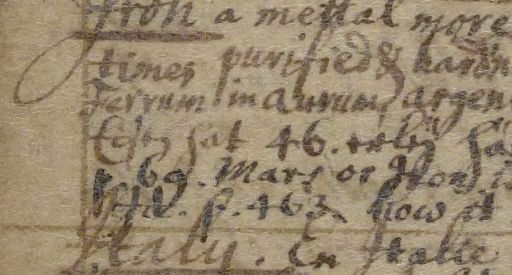 Iron a mettal more
times purified & hard
Ferrum in aurum, argen
hat 46.
p 69. Mars or Iron i
p. 463. how it
Italy. En Italie